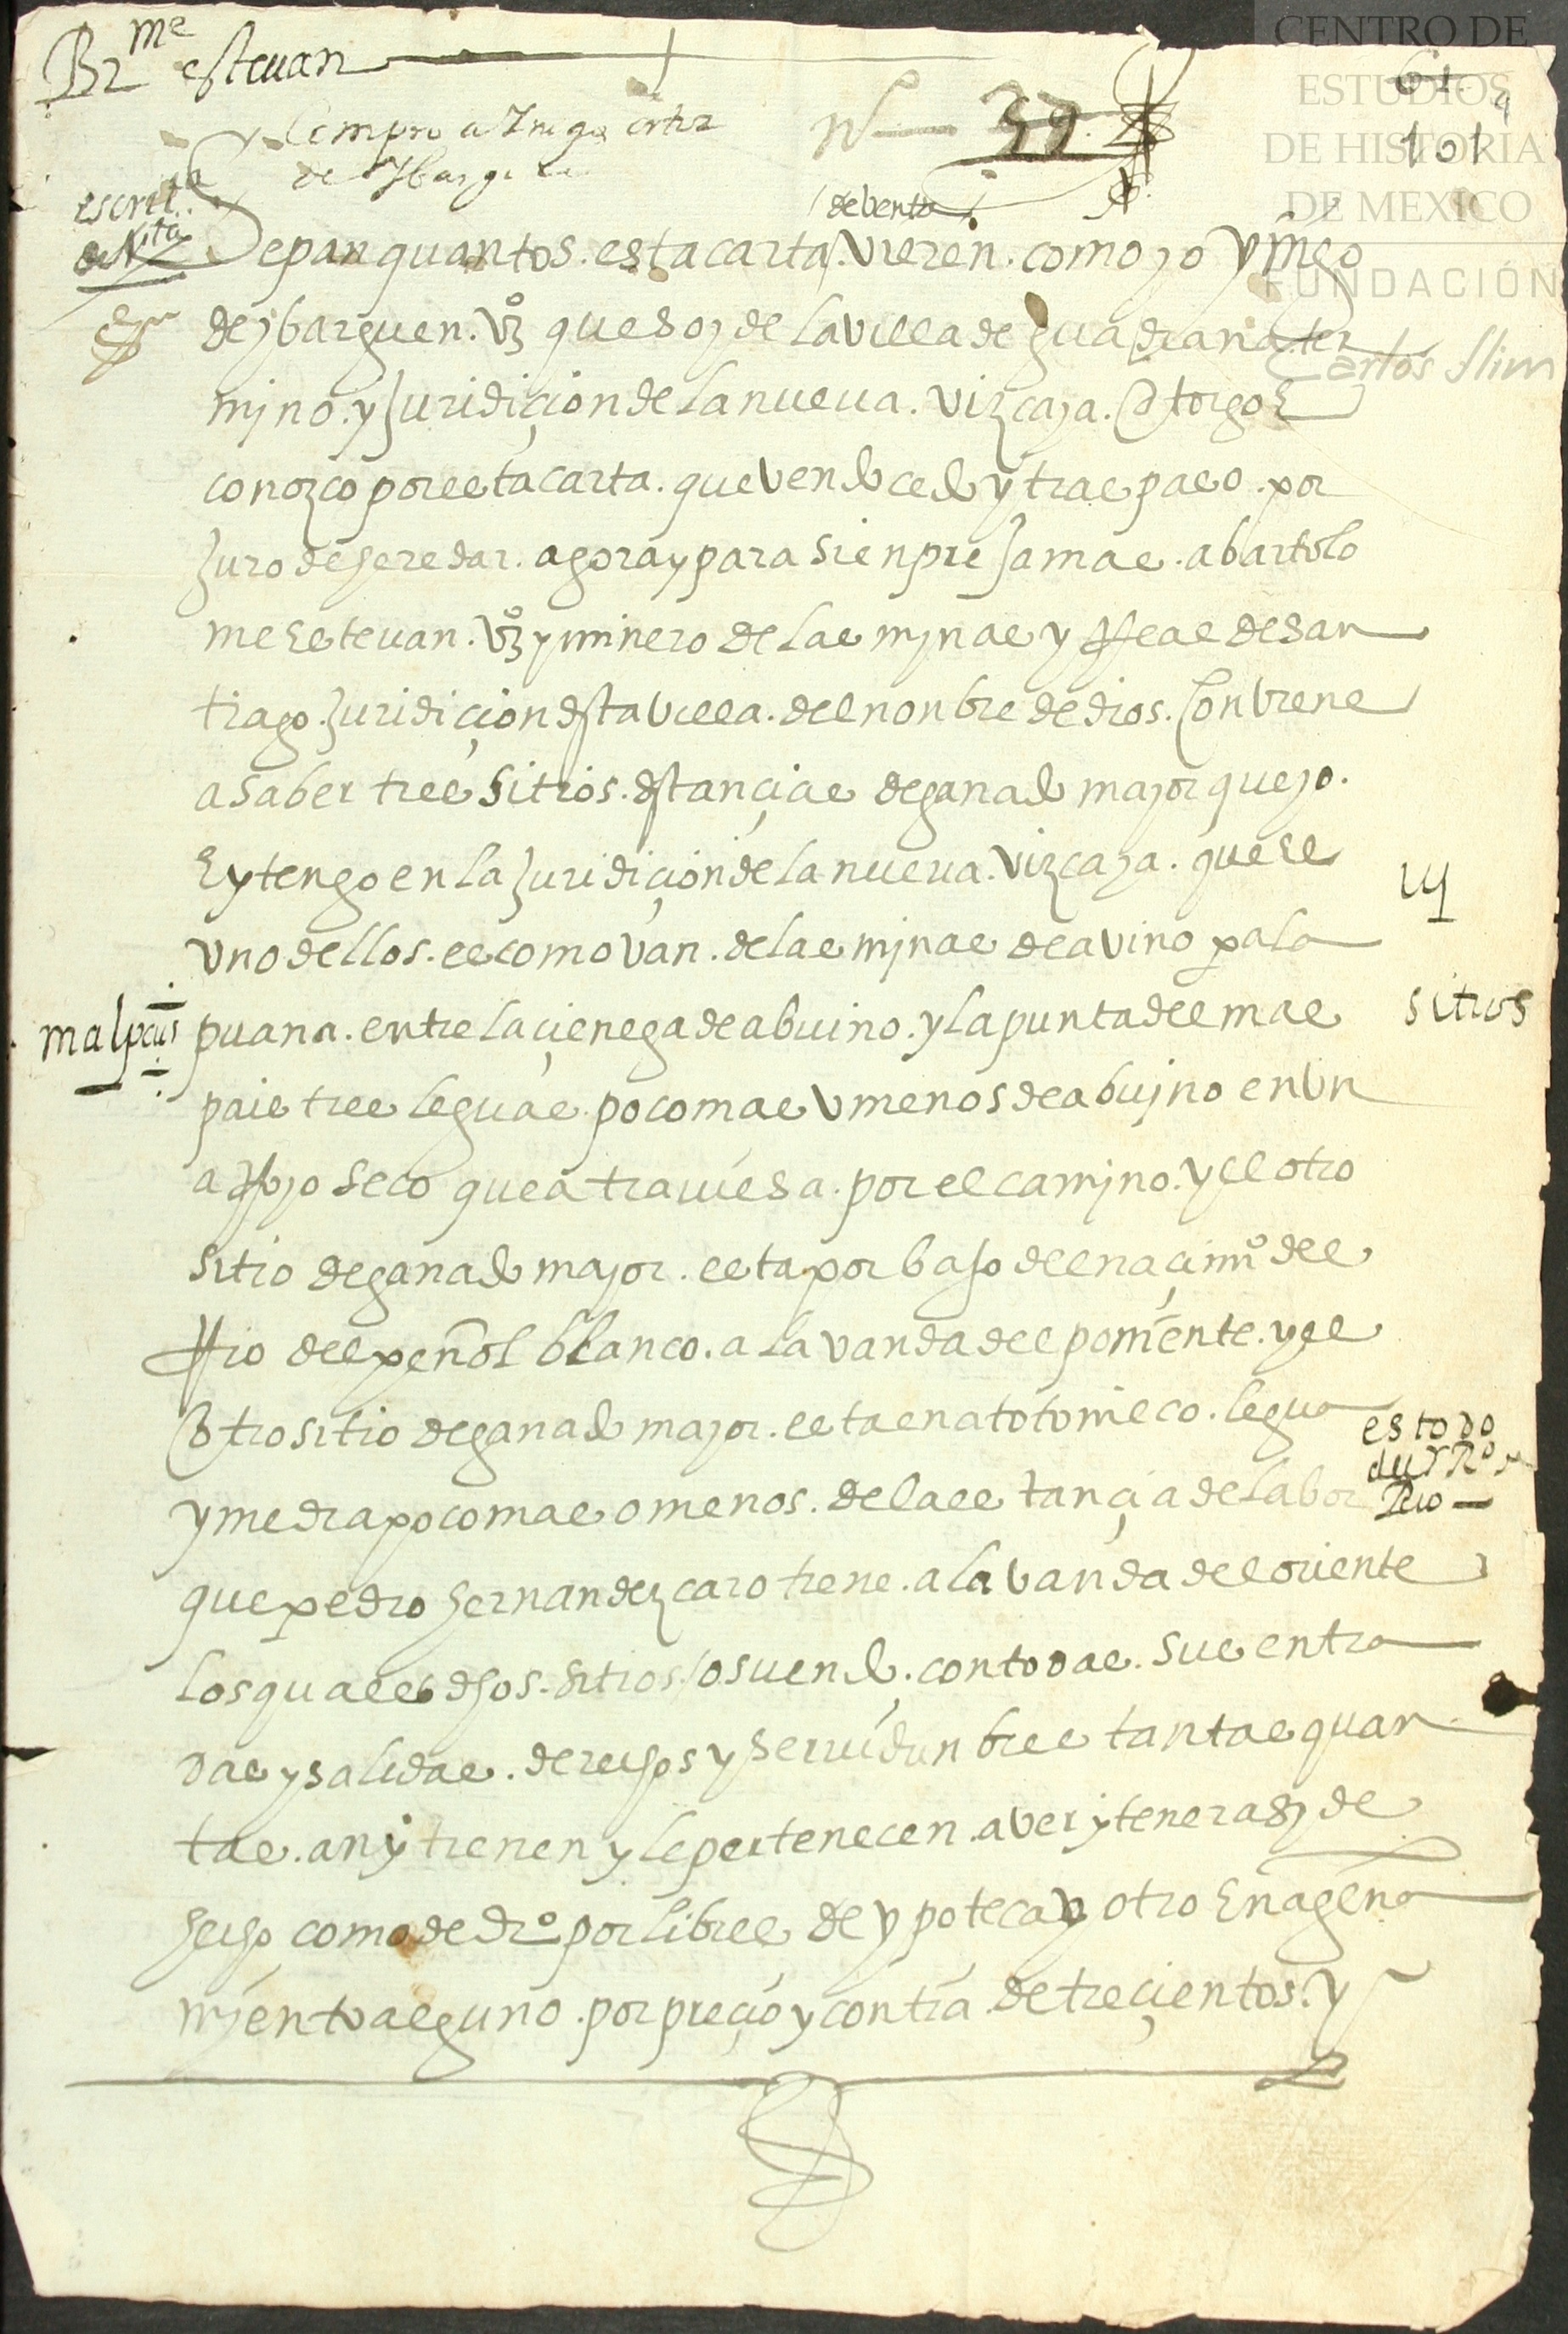 Bar.me estevan
Compro a Inigo ortiz
de Ybarguen
No 39
61
101
escrit.ra
de Vta
de benta
Sepan quantos esta carta vieren como yo yñigo
de ybarguen vzº que soy de la villa de guadiana ter
mino y juridiçion de la nueva vizcaya otorgo E
conozco por esta carta que vendo cedo y traspaso por
juro de heredar agora y para sienpre jamas a bartolo
me estevan vzº y minero de las mynas y Reales de san
tiago juridiçion desta villa del nonbre de dios Conviene
a saber tres sitios destançias de ganado mayor que yo
E y tengo en la juridiçion de la nueva vizcaya que el
uno dellos es como van de las mynas de avino pa la
puana entre la çienega de abuino y la punta del mal
pais tres leguas poco mas u menos de abuyno en un
aRoyo seco que atraviesa por el camyno y el otro
sitio de ganado mayor esta por bajo del naçimiº del
Rio del peñol blanco a la vanda del poniente y el
Otro sitio de ganado mayor esta en atotonilco legua
y media poco mas o menos de la estançia de labor
que pedro hernandez caro tiene a la vanda del oriente
los quales dhos sitios os vendo con todas sus entra
das y salidas derechos y servidunbres tantas quan
tas an y tienen y le pertenecen aver y tener asy de
hecho como de drº por libres de ypoteca y otro Enagena
myento alguno por preçio y contia de treçientos y
malpais
iij
sitios
es todo
Rio
CENTRO DE
ESTUDIOS
DE HISTORIA
DE MEXICO
FUNDACIÓN
Carlos Slim